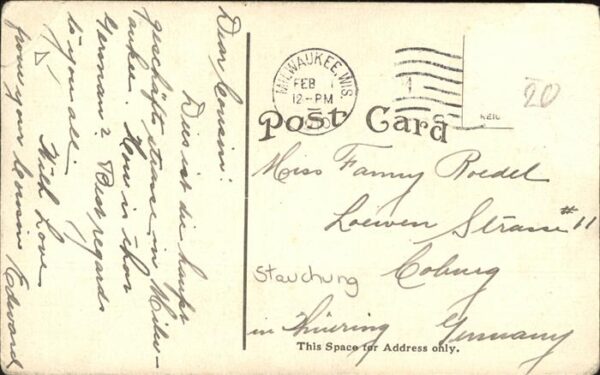 Dear Cousin:
Dies ist die haupt
geschäfts strasse in Milw-
aukee. How is thos
German? Best regards
to you all.
With Love
from your Cousin Edward
MILWAUKEE, WIS.
FEB 1
12-PM
Post Card
20
Miss Fanny Roedel
Loewen Strasse #11
Coburg
Stauchung
in Thüring Germany
This Space for Address only.